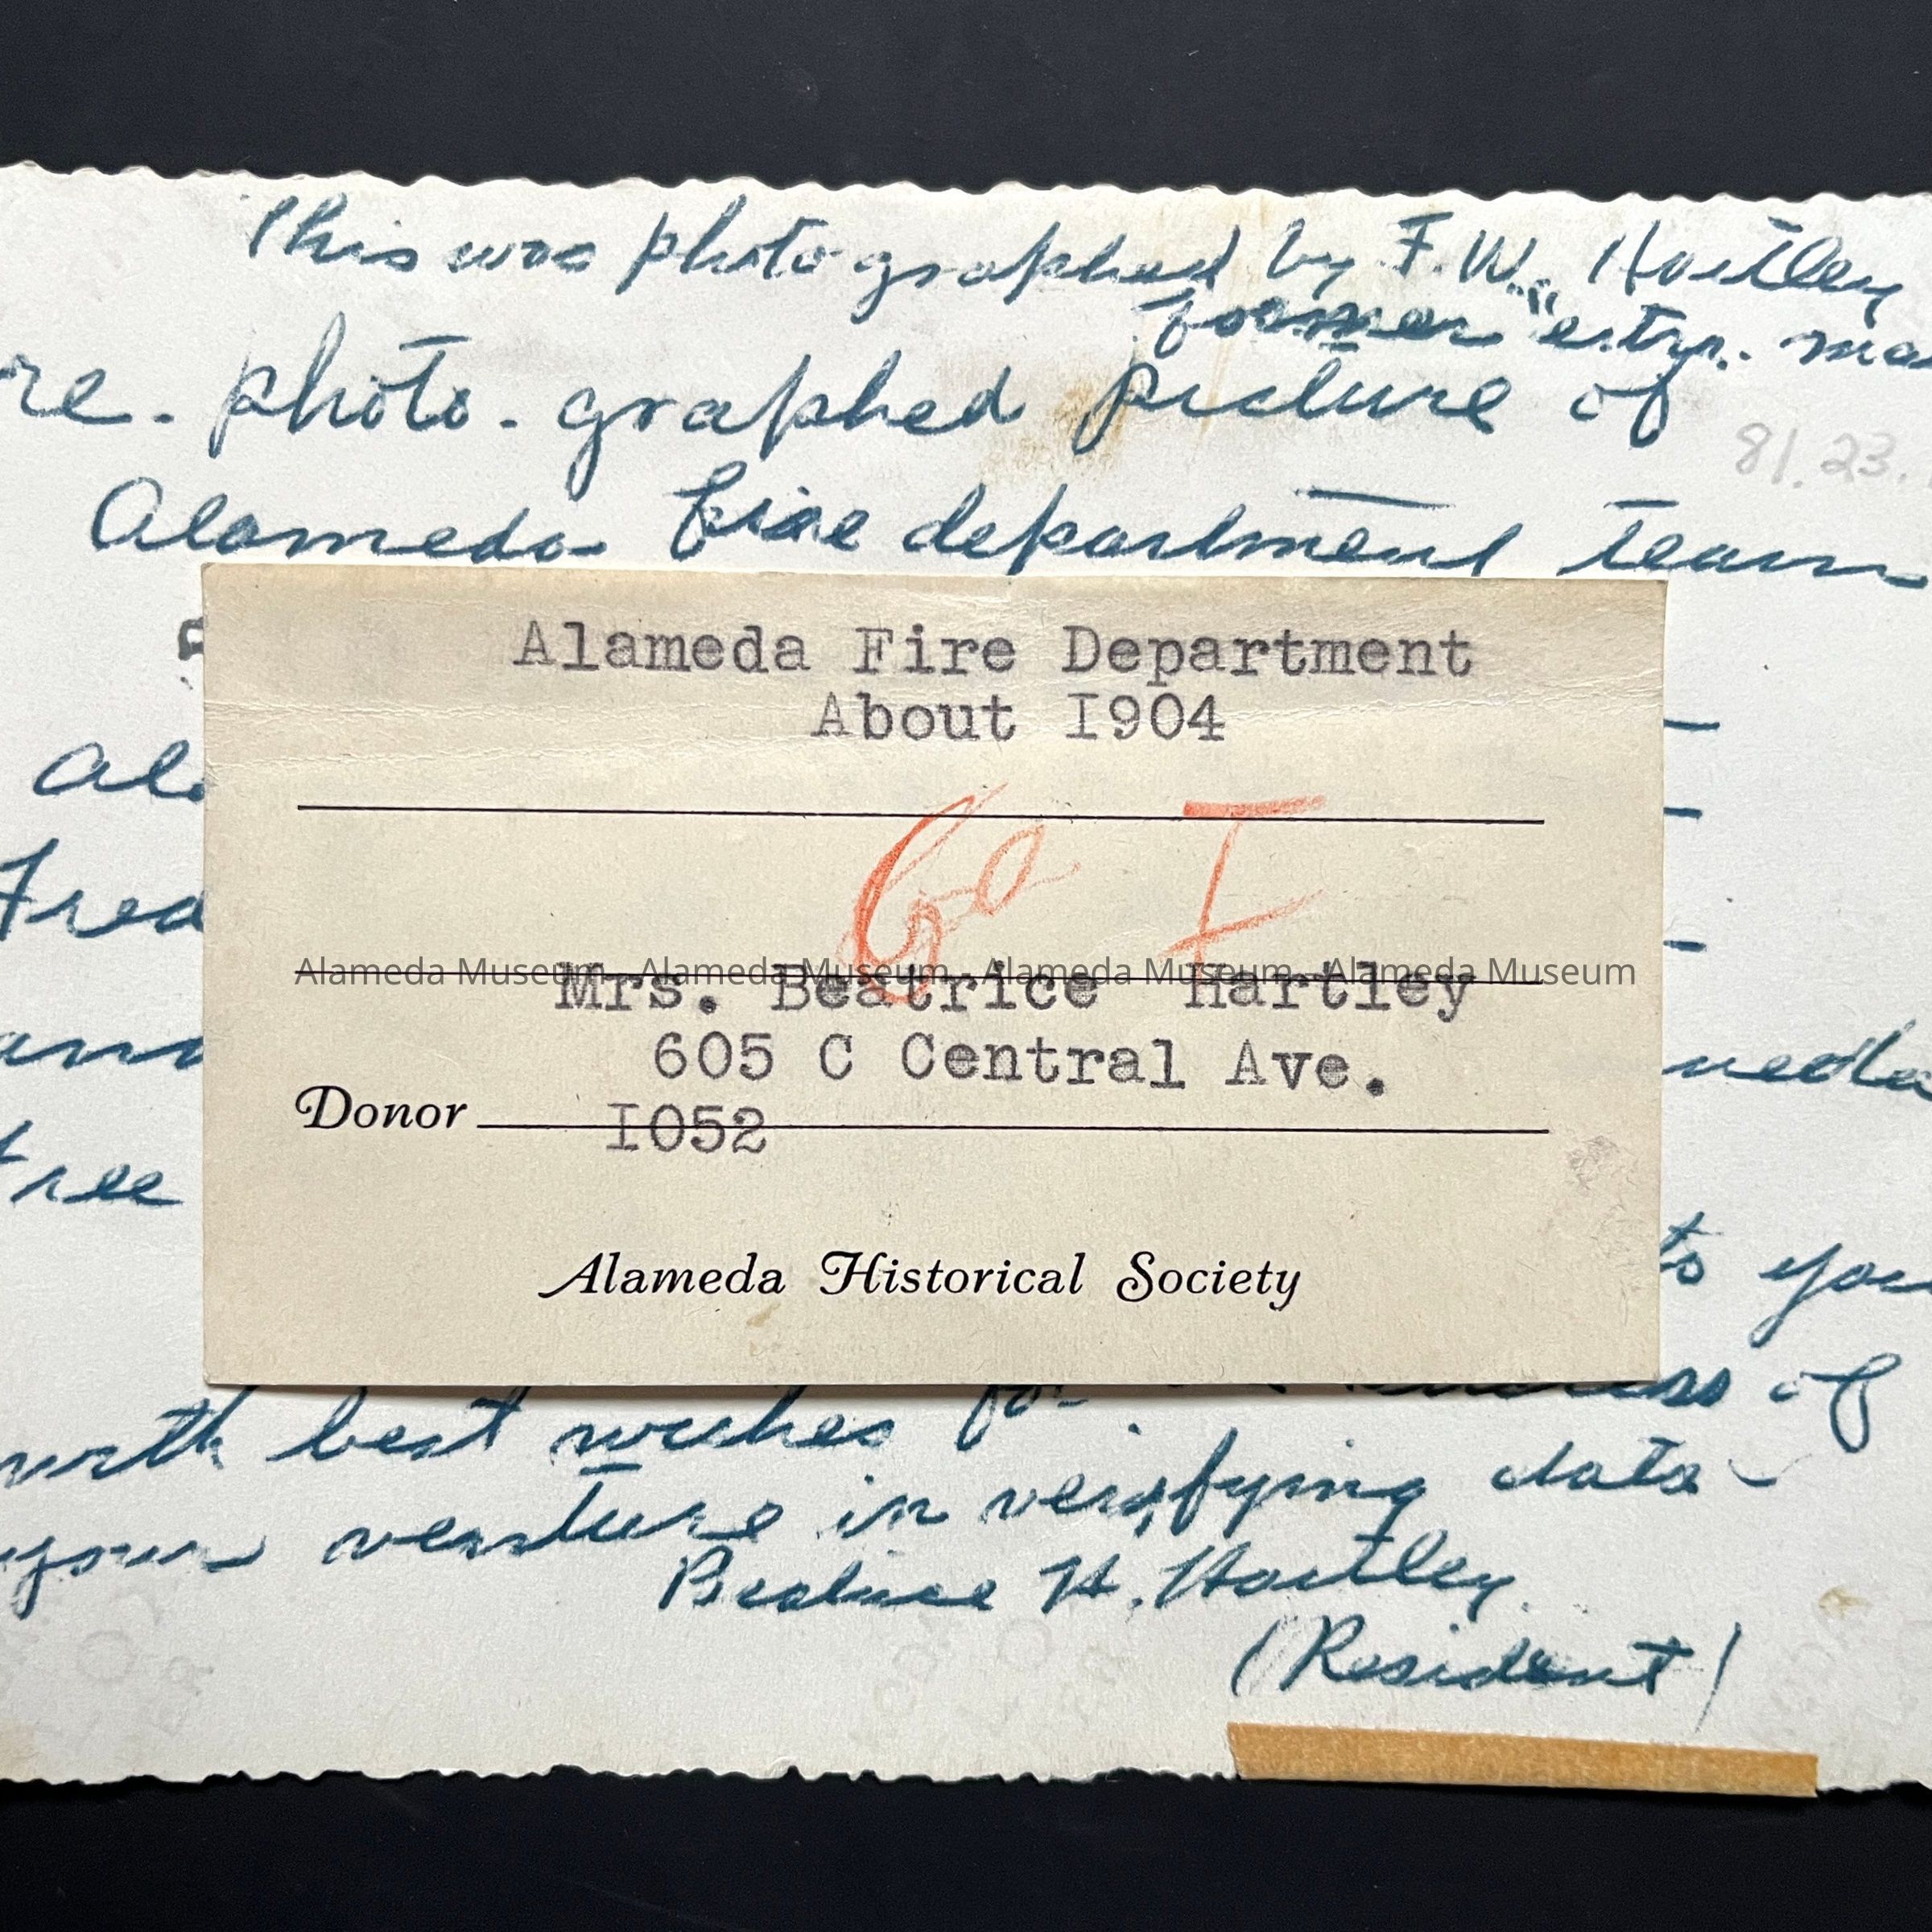 This was photographed by F. W. Hartley
former "extr. ma
re. photo. graphed picture of
81.23.
Alameda fire department team
Alameda Fire Department
About I904
Ala
Fred
Co I
Alameda Museum - Alameda Museum - Alameda Museum - Alameda Museum
Mrs. Beatrice Hartley
605 C Central Ave.
Donor I052
meda
tree
to you
Alameda Historical Society
with best wishes for success of
your venture in verifying data -
Beatrice H. Hartley.
(Resident)